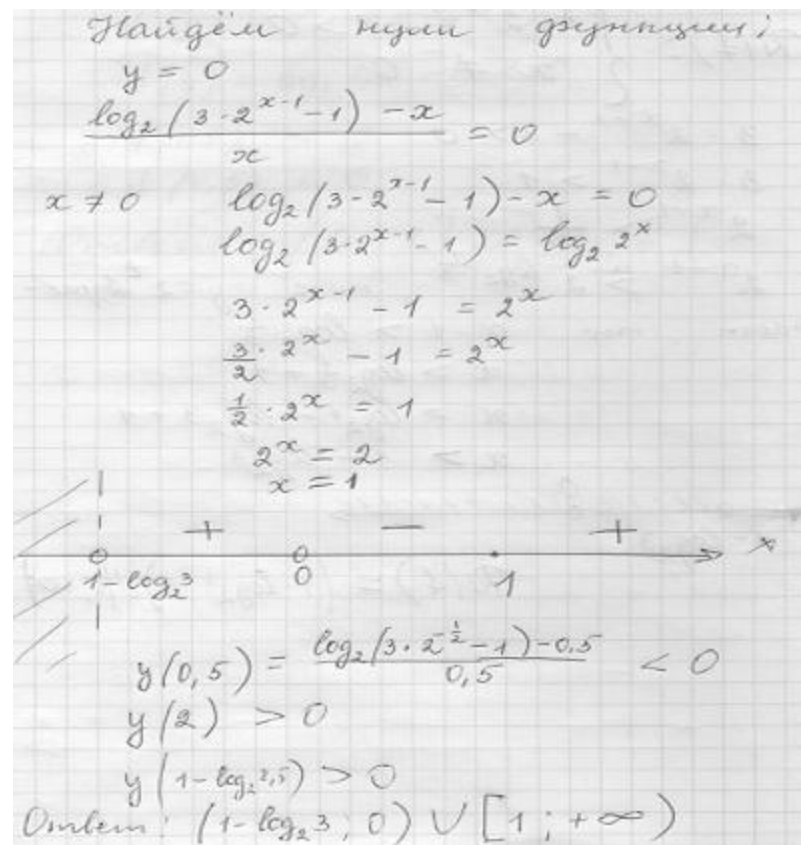 Найдём нули функции;
y = 0
log₂(3·2^(x-1) -1) - x / x = 0
x ≠ 0 log₂(3·2^(x-1) - 1) - x = 0
log₂(3·2^(x-1) - 1) = log₂ 2^x
3·2^(x-1) - 1 = 2^x
3/2 · 2^x - 1 = 2^x
1/2 · 2^x = 1
2^x = 2
x = 1
+ − + x
1-log₂3 0 1
y(0,5) = log₂(3·2^(-1/2) -1) -0,5 / 0,5 < 0
y(2) > 0
y(1-log₂2,5) > 0
Ответ: (1-log₂3; 0) ∪ [1; +∞)